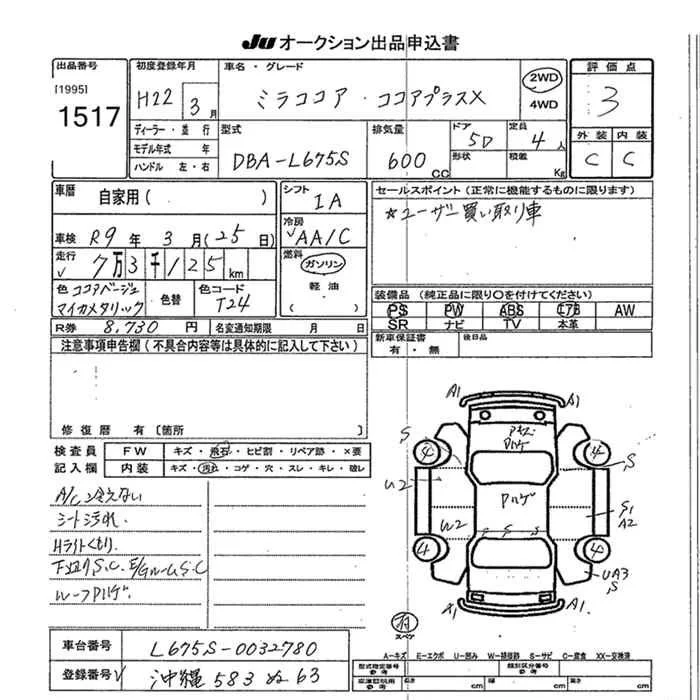 JU オークション出品申込書
出品番号 初度登録年月 車名・グレード 2WD 評価点
[1995] 1517 H22 3月 ミラココア・ココアプラスX 4WD 3
ディーラー・並行 型式 排気量 ドア 定員 外装 内装
モデル年式 年 DBA-L675S 600CC 5D 4人 C C
ハンドル 左・右 形状 積載 Kg
車暦 自家用( ) シフト IA セールスポイント(正常に機能するものに限ります)
車検 R9年3月(25日) 冷房 AA/C ☆ユーザー買い取り車
走行 7万3千125km 燃料 ガソリン
色 ココアベージュマイカメタリック 色替 色コード T24 軽油 ( )
装備品(純正品に限り○を付けてください)
R券 8,730円 名変通知期限 月 日 PS PW ABS エアB AW
SR ナビ TV 本革
注意事項申告欄(不具合内容等は具体的に記入して下さい) 新車保証書 有・無 後日品
修復歴 有〔箇所 〕
検査員 FW キズ・飛石・ヒビ割・リペア跡・×要
記入欄 内装 キズ・汚れ・コゲ・穴・スレ・キレ・破レ
A/C冷えない
シート汚れ.
Hライトくもり.
下廻りS.C. E/Gルーム S.C
ルーフPハゲ
A1 A1
Pハゲ
S 4 4 S
U2 Pハゲ S1
A2
W2 S S S
4 4 UA3
S
A1 A1
有
スペケ
車台番号 L675S-0032780
登録番号 沖縄 583 ぬ 63
A-キズ E-エクボ U-凹み W-補修跡 S-サビ C-腐食 XX-交換済
型式指定番号 参考 類別区分番号 参考
長さ cm 幅 cm 高さ cm